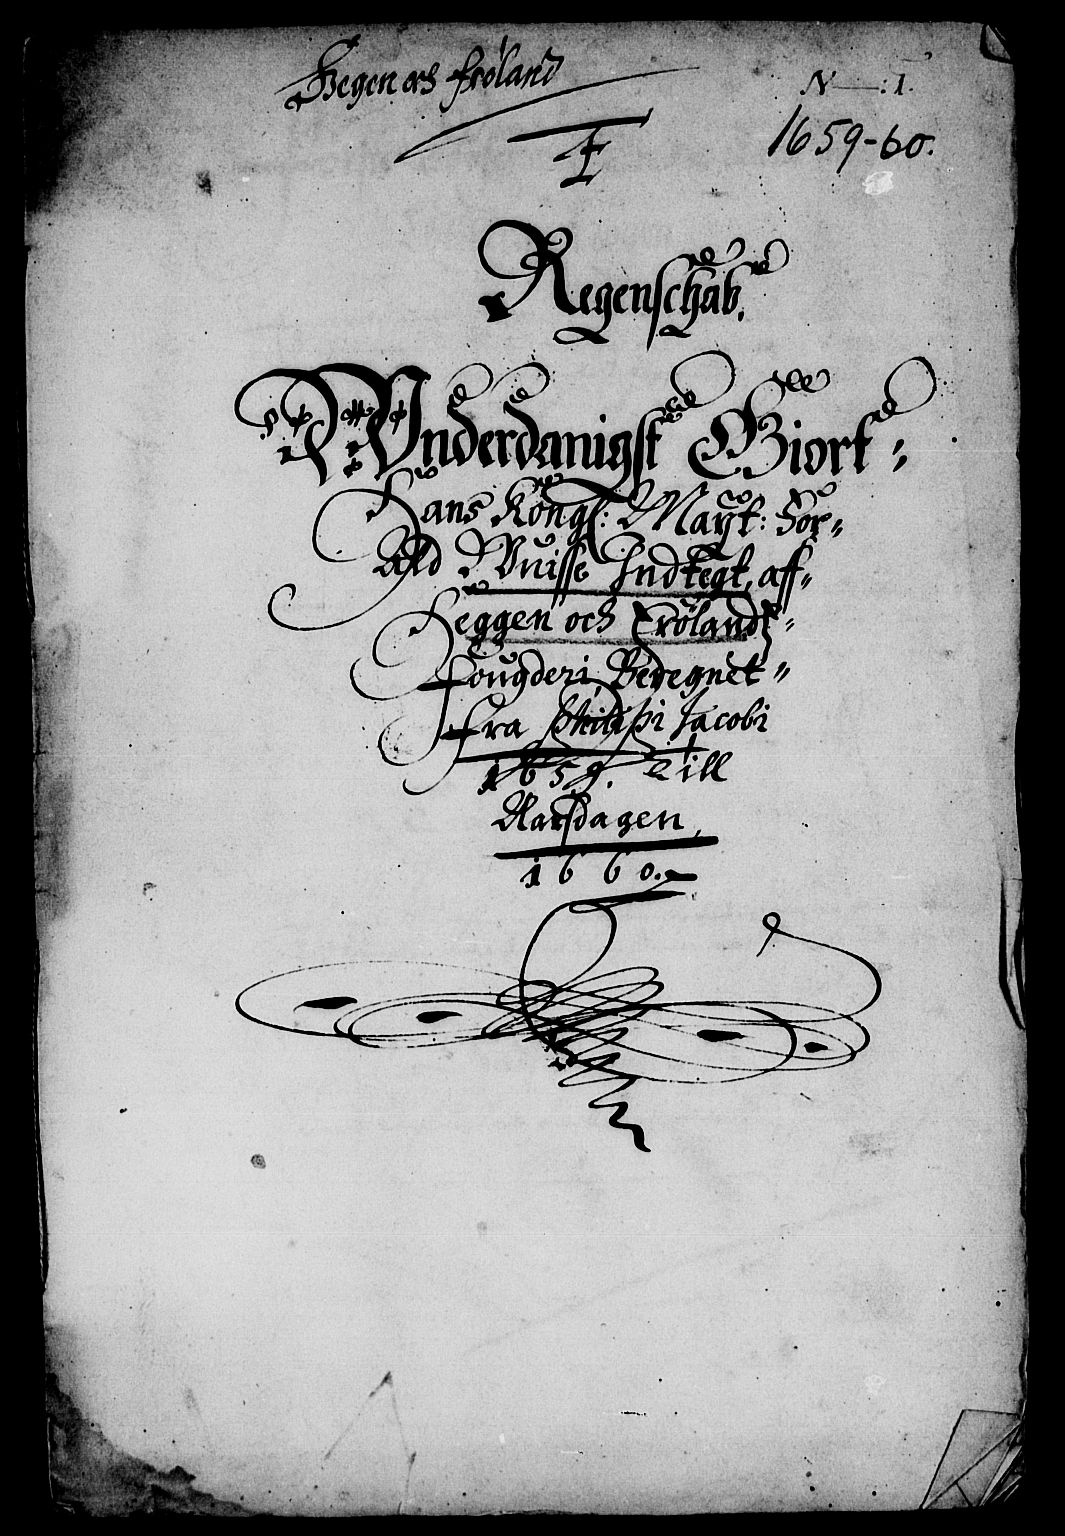 Heggen och Fröland
N—: 1.
1659-60.
F
Regenschab.
Vnderdanigst Giort
Hans Kongl: Mayt: For-
Ald Vuisse Indtegt, aff
Heggen och Frölandz
Fougderi, Beregnet
Fra Philippi Jacobi
1659. Till
Aarsdagen
1660.